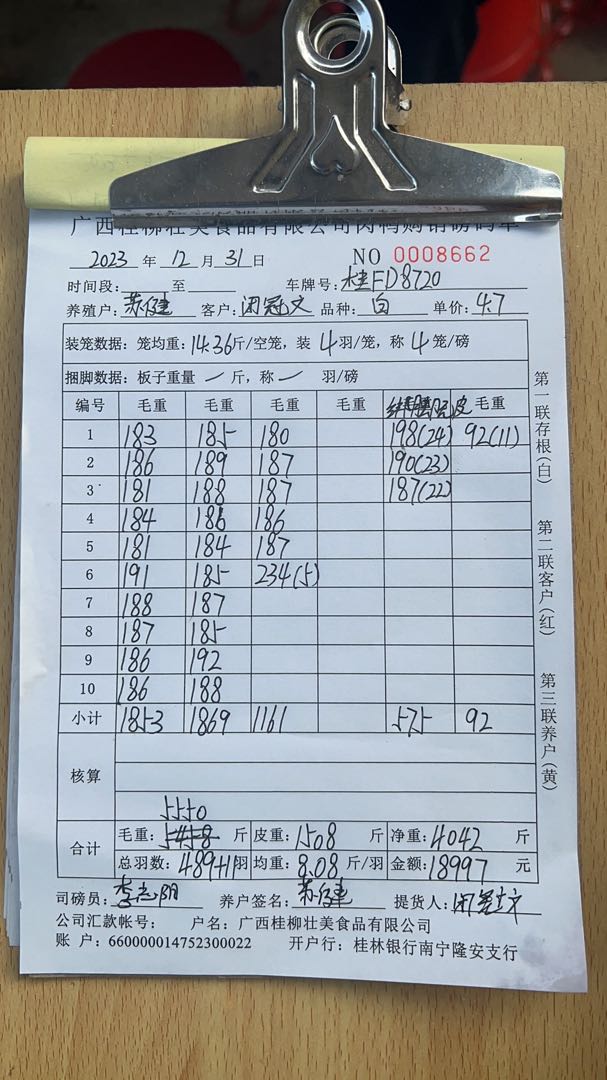 广西桂柳壮美食品有限公司肉鸭购销磅码单
2023 年 12 月 31 日 NO 0008662
时间段: 至 车牌号: 桂FD8720
养殖户: 苏健 客户: 闭冠文 品种: 白 单价: 4.7
装笼数据: 笼均重: 14.36斤/空笼, 装 4羽/笼, 称 4 笼/磅
捆脚数据: 板子重量 一 斤, 称 一 羽/磅
编号 毛重 毛重 毛重 毛重 皮 毛重
1 183 185 180 198(24) 92(11)
2 186 189 187 190(23)
3 181 188 187 187(22)
4 184 186 186
5 181 184 187
6 191 185 234(5)
7 188 187
8 187 185
9 186 192
10 186 188
小计 1853 1869 1161 575 92
核算
5550
合计 毛重: 5458 斤 皮重: 1508 斤 净重: 4042 斤
总羽数: 489+11羽 均重: 8.08斤/羽 金额: 18997 元
司磅员: 李志阴 养户签名: 苏健 提货人: 闭冠文
公司汇款帐号: 户名: 广西桂柳壮美食品有限公司
账 户: 660000014752300022 开户行: 桂林银行南宁隆安支行
第一联存根(白)
第二联客户(红)
第三联养户(黄)